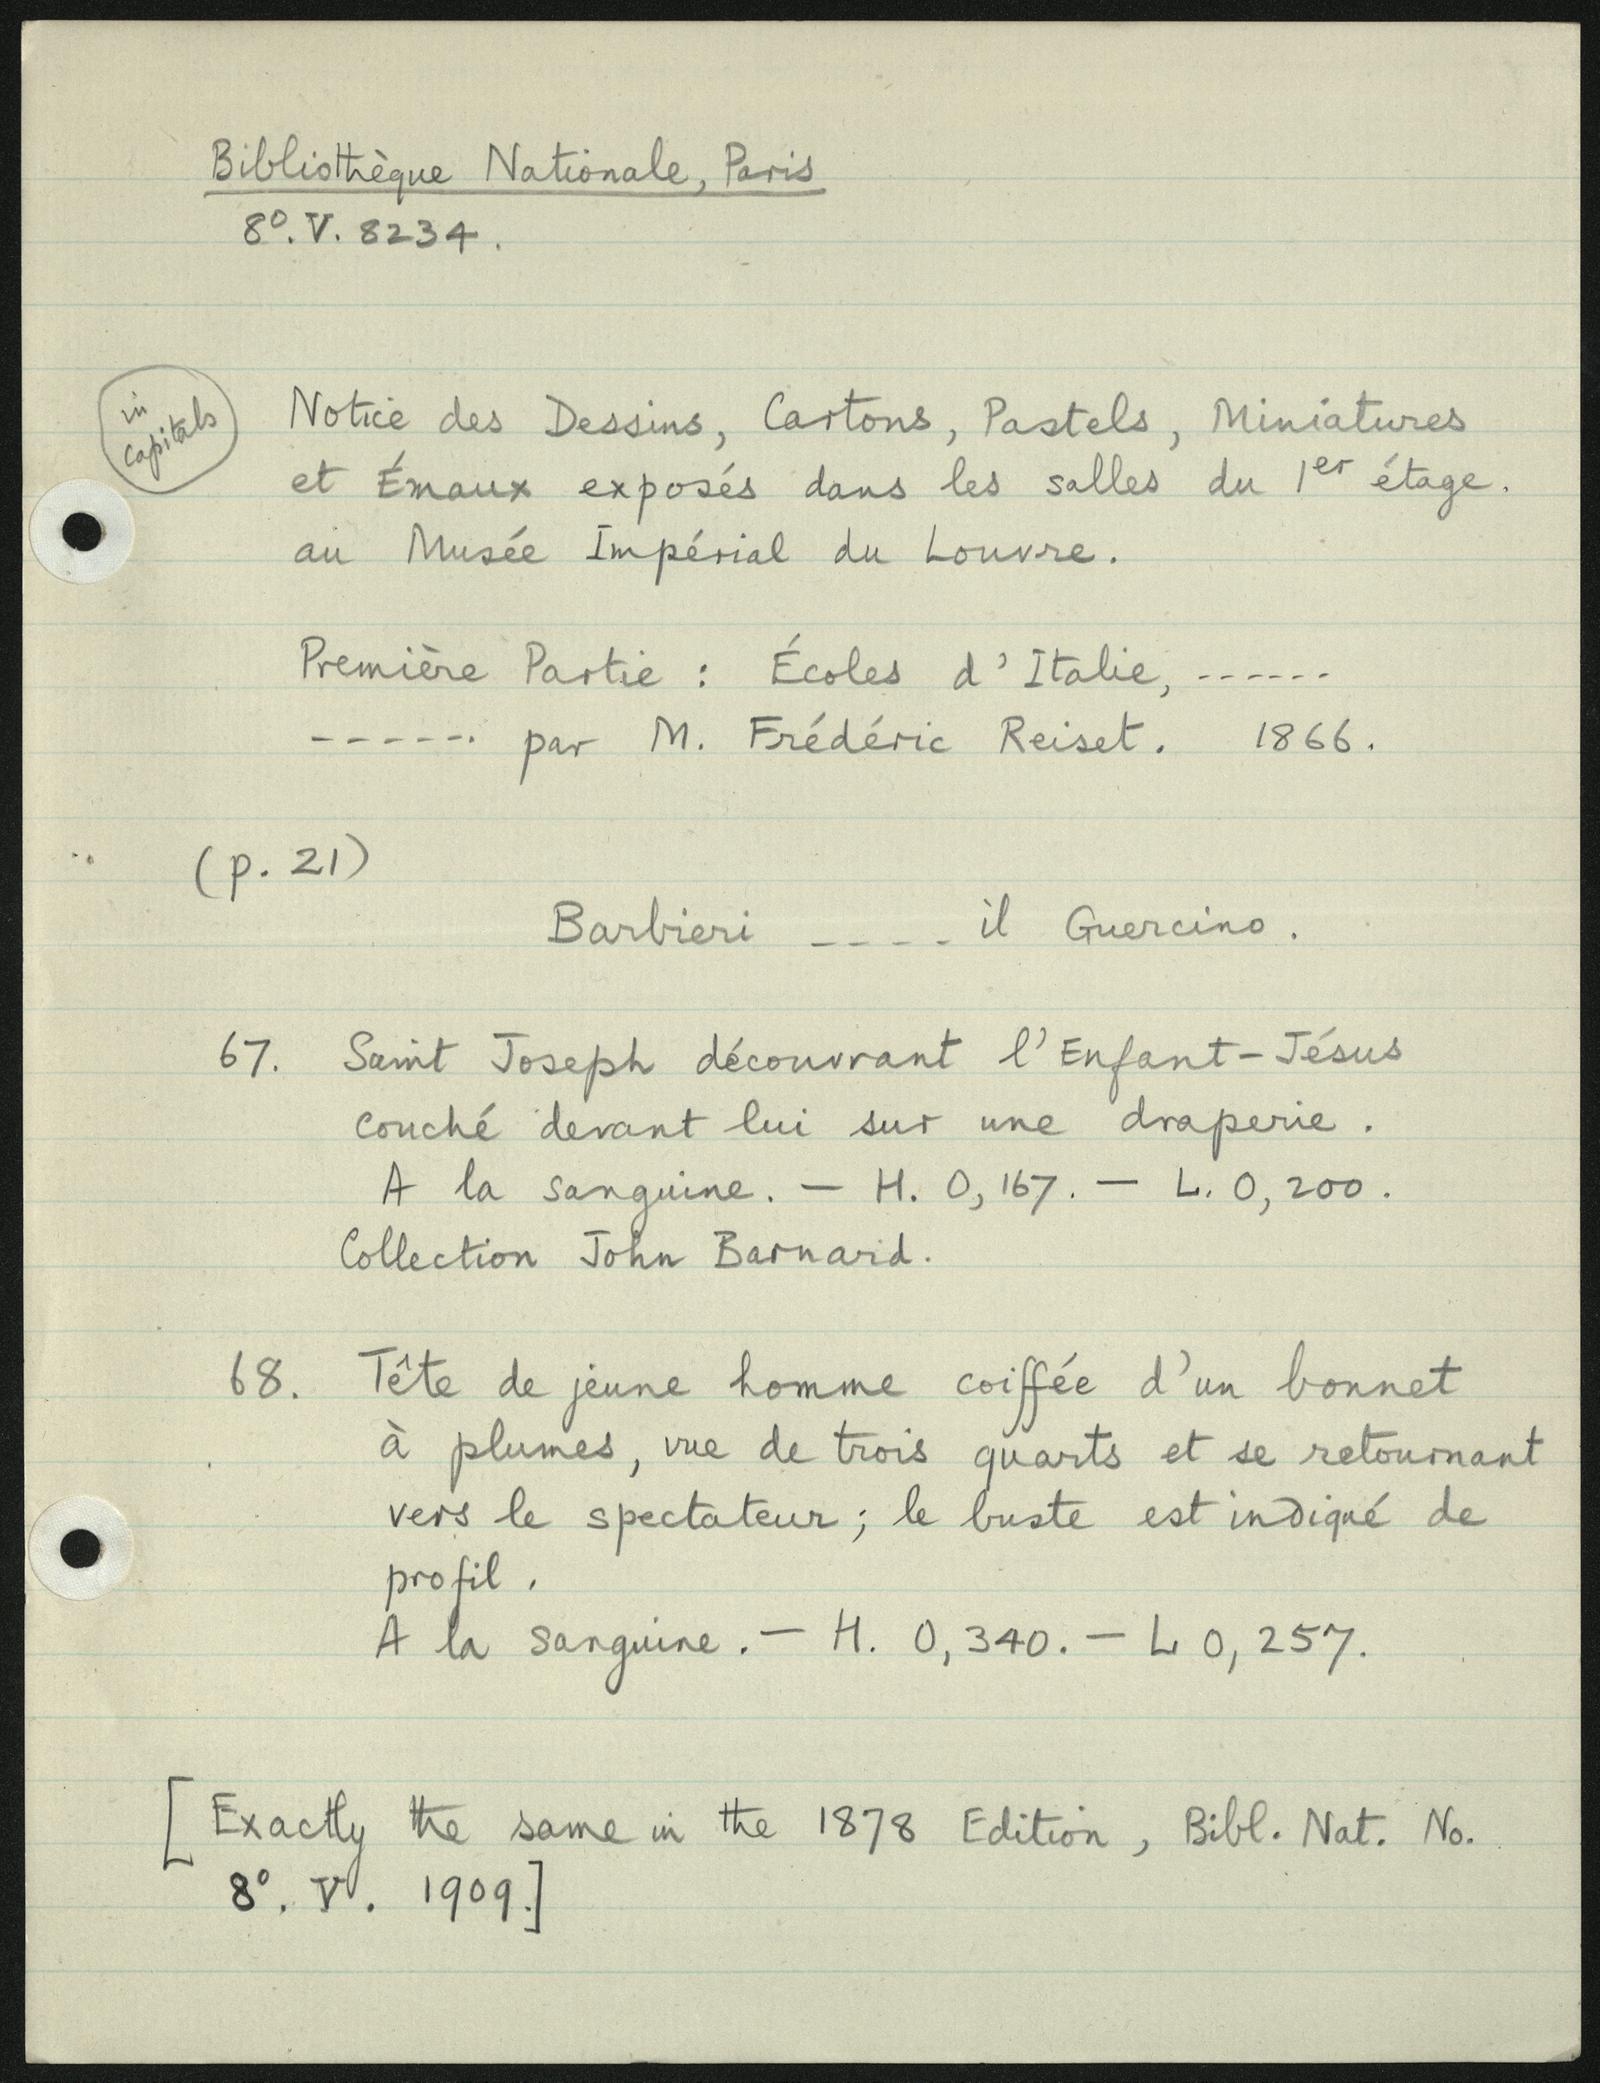 Bibliothèque Nationale, Paris
8º. V. 8234.
in
capitals
Notice des Dessins, Cartons, Pastels, Miniatures
et Émaux exposés dans les salles du 1er étage.
au Musée Impérial du Louvre.
Première Partie : Écoles d'Italie, ------
------ par M. Frédéric Reiset. 1866.
(p. 21)
Barbieri ---- il Guercino.
67. Saint Joseph découvrant l'Enfant-Jésus
couché devant lui sur une draperie.
A la sanguine. — H. 0,167. — L. 0,200.
Collection John Barnard.
68. Tête de jeune homme coiffée d'un bonnet
à plumes, vue de trois quarts et se retournant
vers le spectateur; le buste est indiqué de
profil.
A la sanguine. — H. 0,340. — L 0,257.
[Exactly the same in the 1878 Edition, Bibl. Nat. No.
8º. V. 1909.]